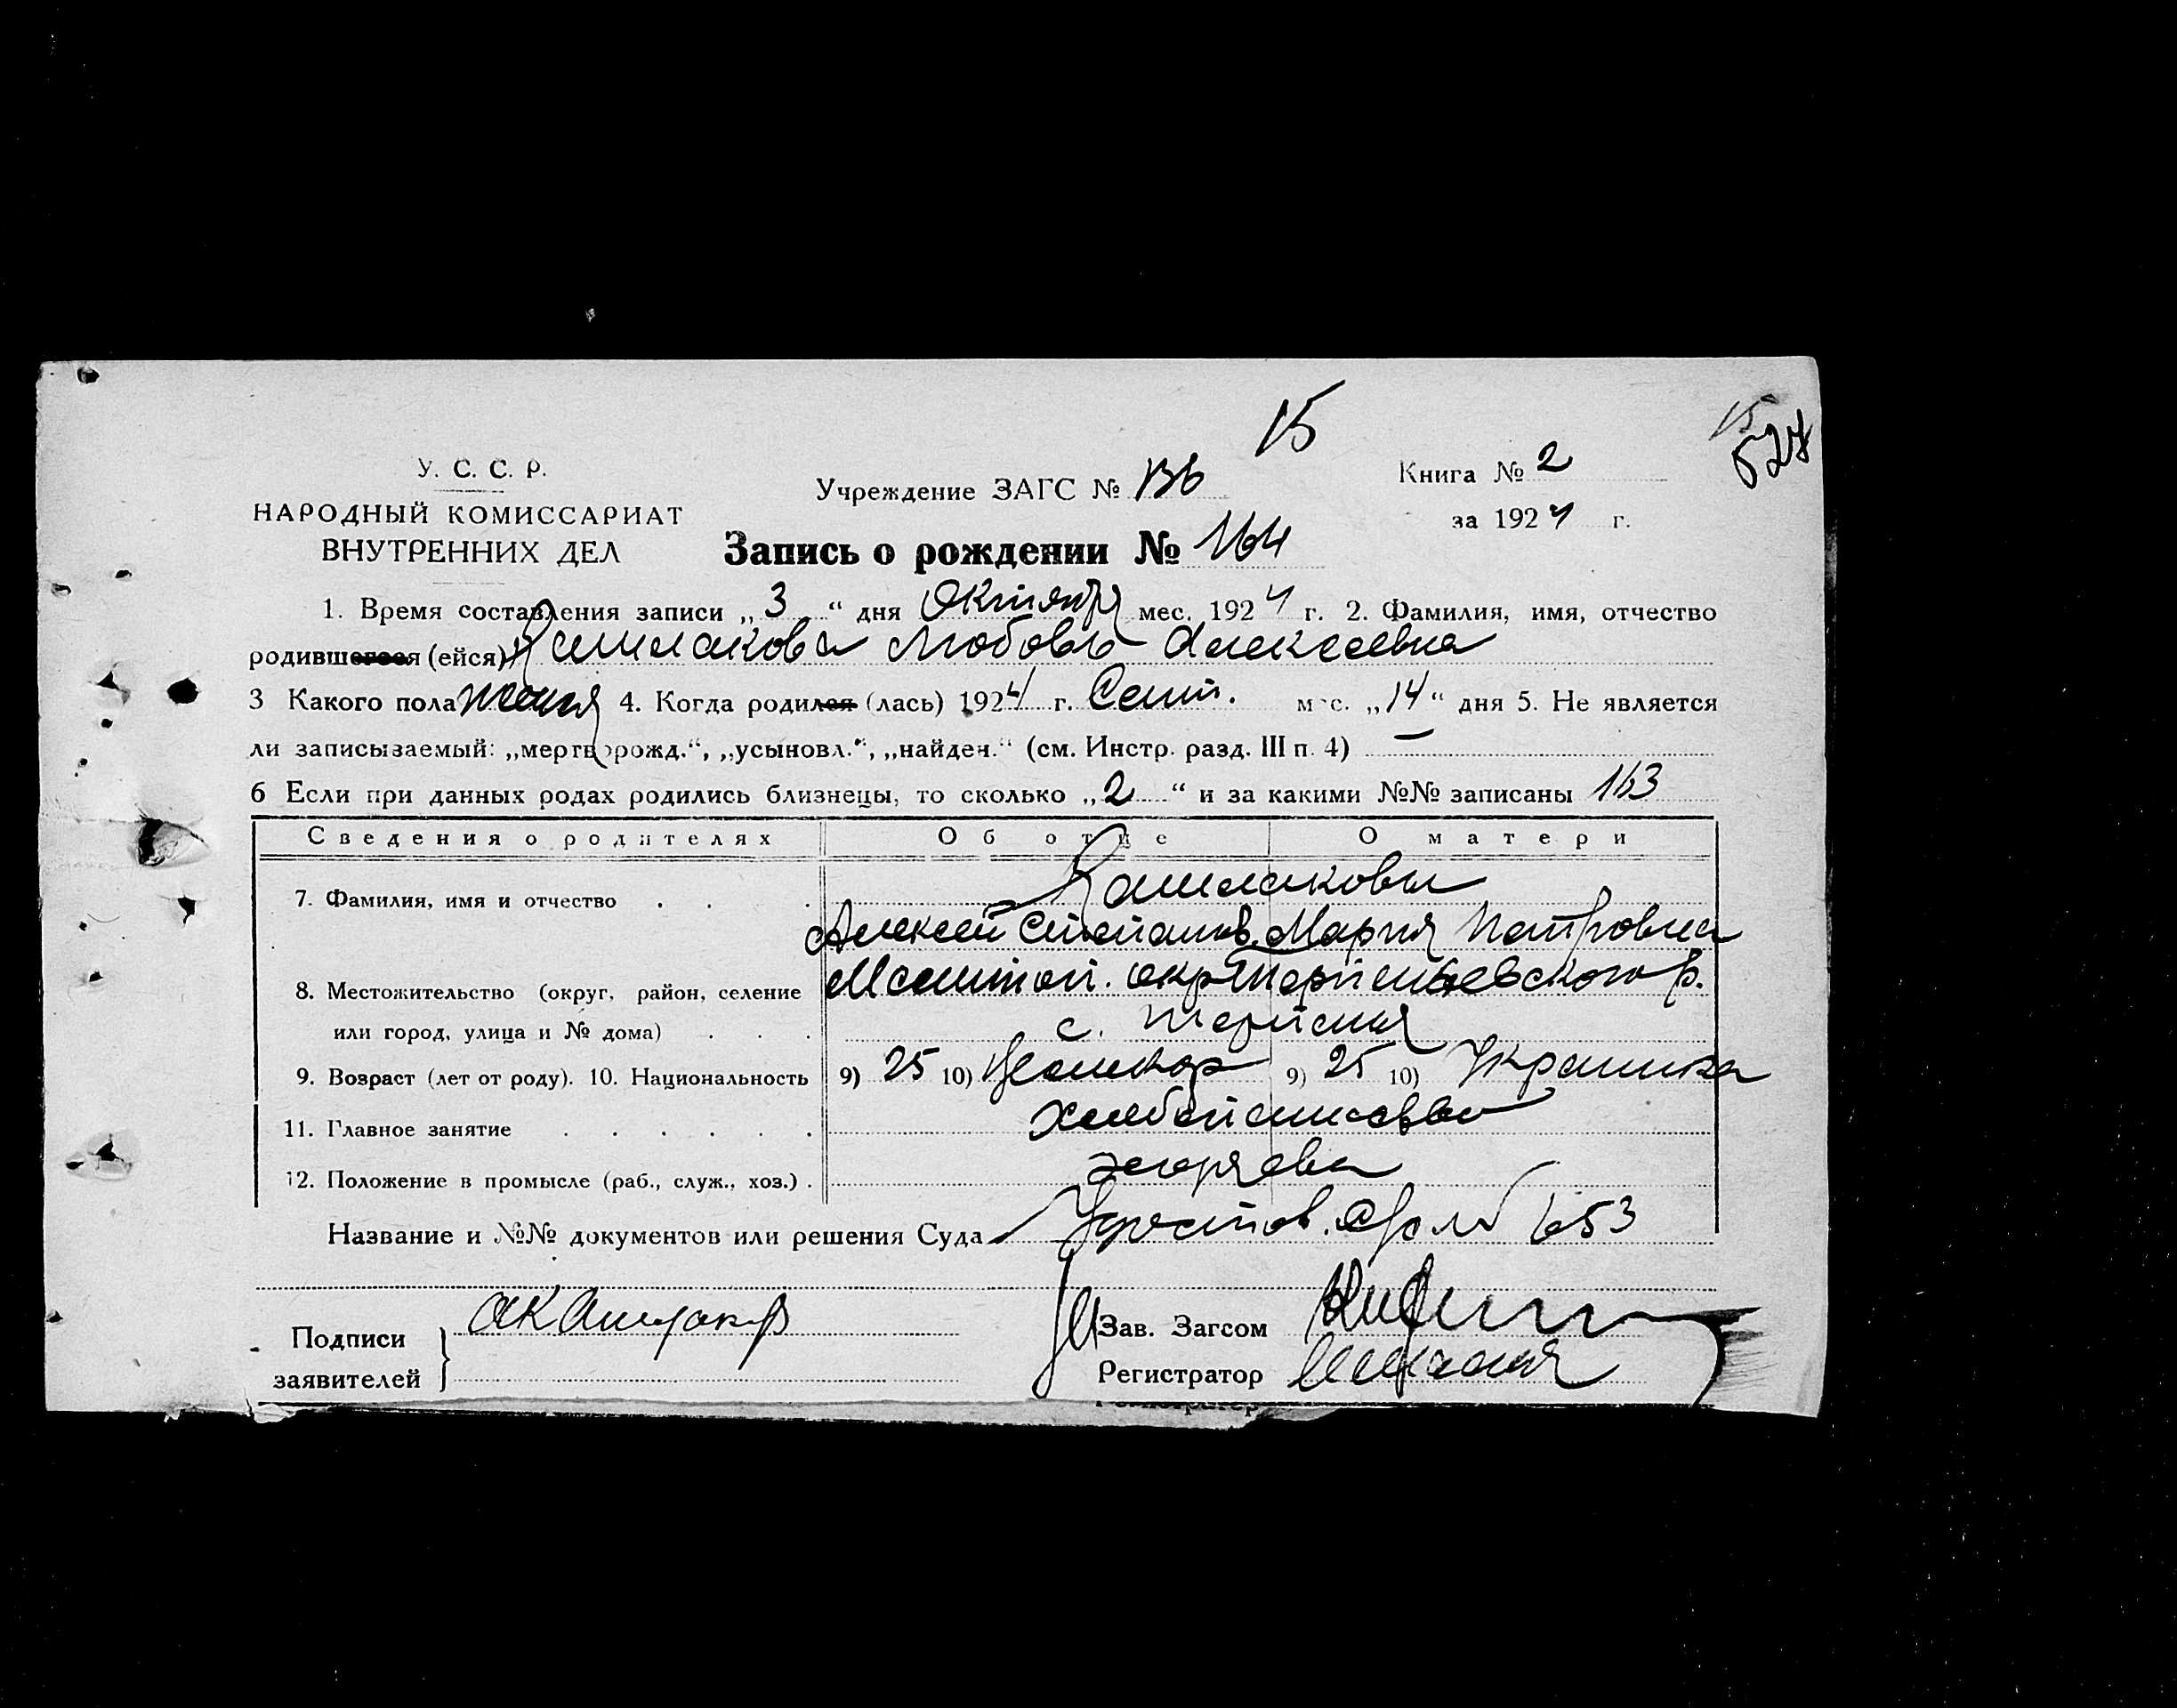 15
15
527
У. С. С. Р.
НАРОДНЫЙ КОМИССАРИАТ
ВНУТРЕННИХ ДЕЛ
Учреждение ЗАГС №
Книга № 2
за 1924 г.
Запись о рождении № 164
1. Время составления записи „3“ дня Октября мес. 1924 г. 2. Фамилия, имя, отчество
родившегося (ейся) Любовь Алексеевна
3 Какого пола женск 4. Когда родился (лась) 1924 г. Сент. мес. „14“ дня 5. Не является
ли записываемый: „мертворожд.“, „усыновл.“, „найден.“ (см. Инстр. разд. III п. 4) —
6 Если при данных родах родились близнецы, то сколько „2“ и за какими №№ записаны 163
Сведения о родителях Об отце О матери
7. Фамилия, имя и отчество
Алексей Степанов. Мария Петровна
8. Местожительство (округ, район, селение окр Терпеньевского р.
или город, улица и № дома) с. Терпеня
9. Возраст (лет от роду). 10. Национальность 9) 25 10) 9) 25 10) Украинка
11. Главное занятие хлебопашество
12. Положение в промысле (раб., служ., хоз.) . хозяева
Название и №№ документов или решения Суда Удостов. с/с № 653
Подписи заявителей
Зав. Загсом
Регистратор